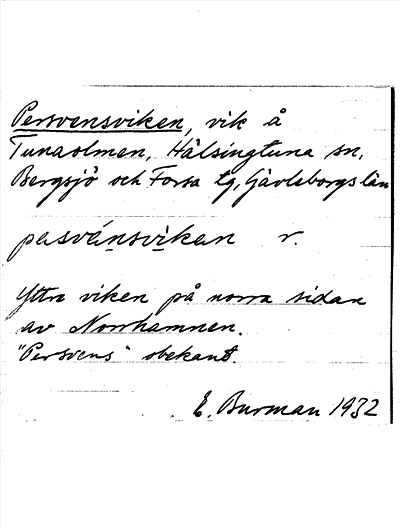 Persvensviken, vik å
Tunaolmen, Hälsingtuna sn,
Bergsjö och Forsa tg, Gävleborgs län
pasvánsvikan v.
Yttre viken på norra sidan
av Norrhamnen.
"Persvens" obekant
E. Burman 1932